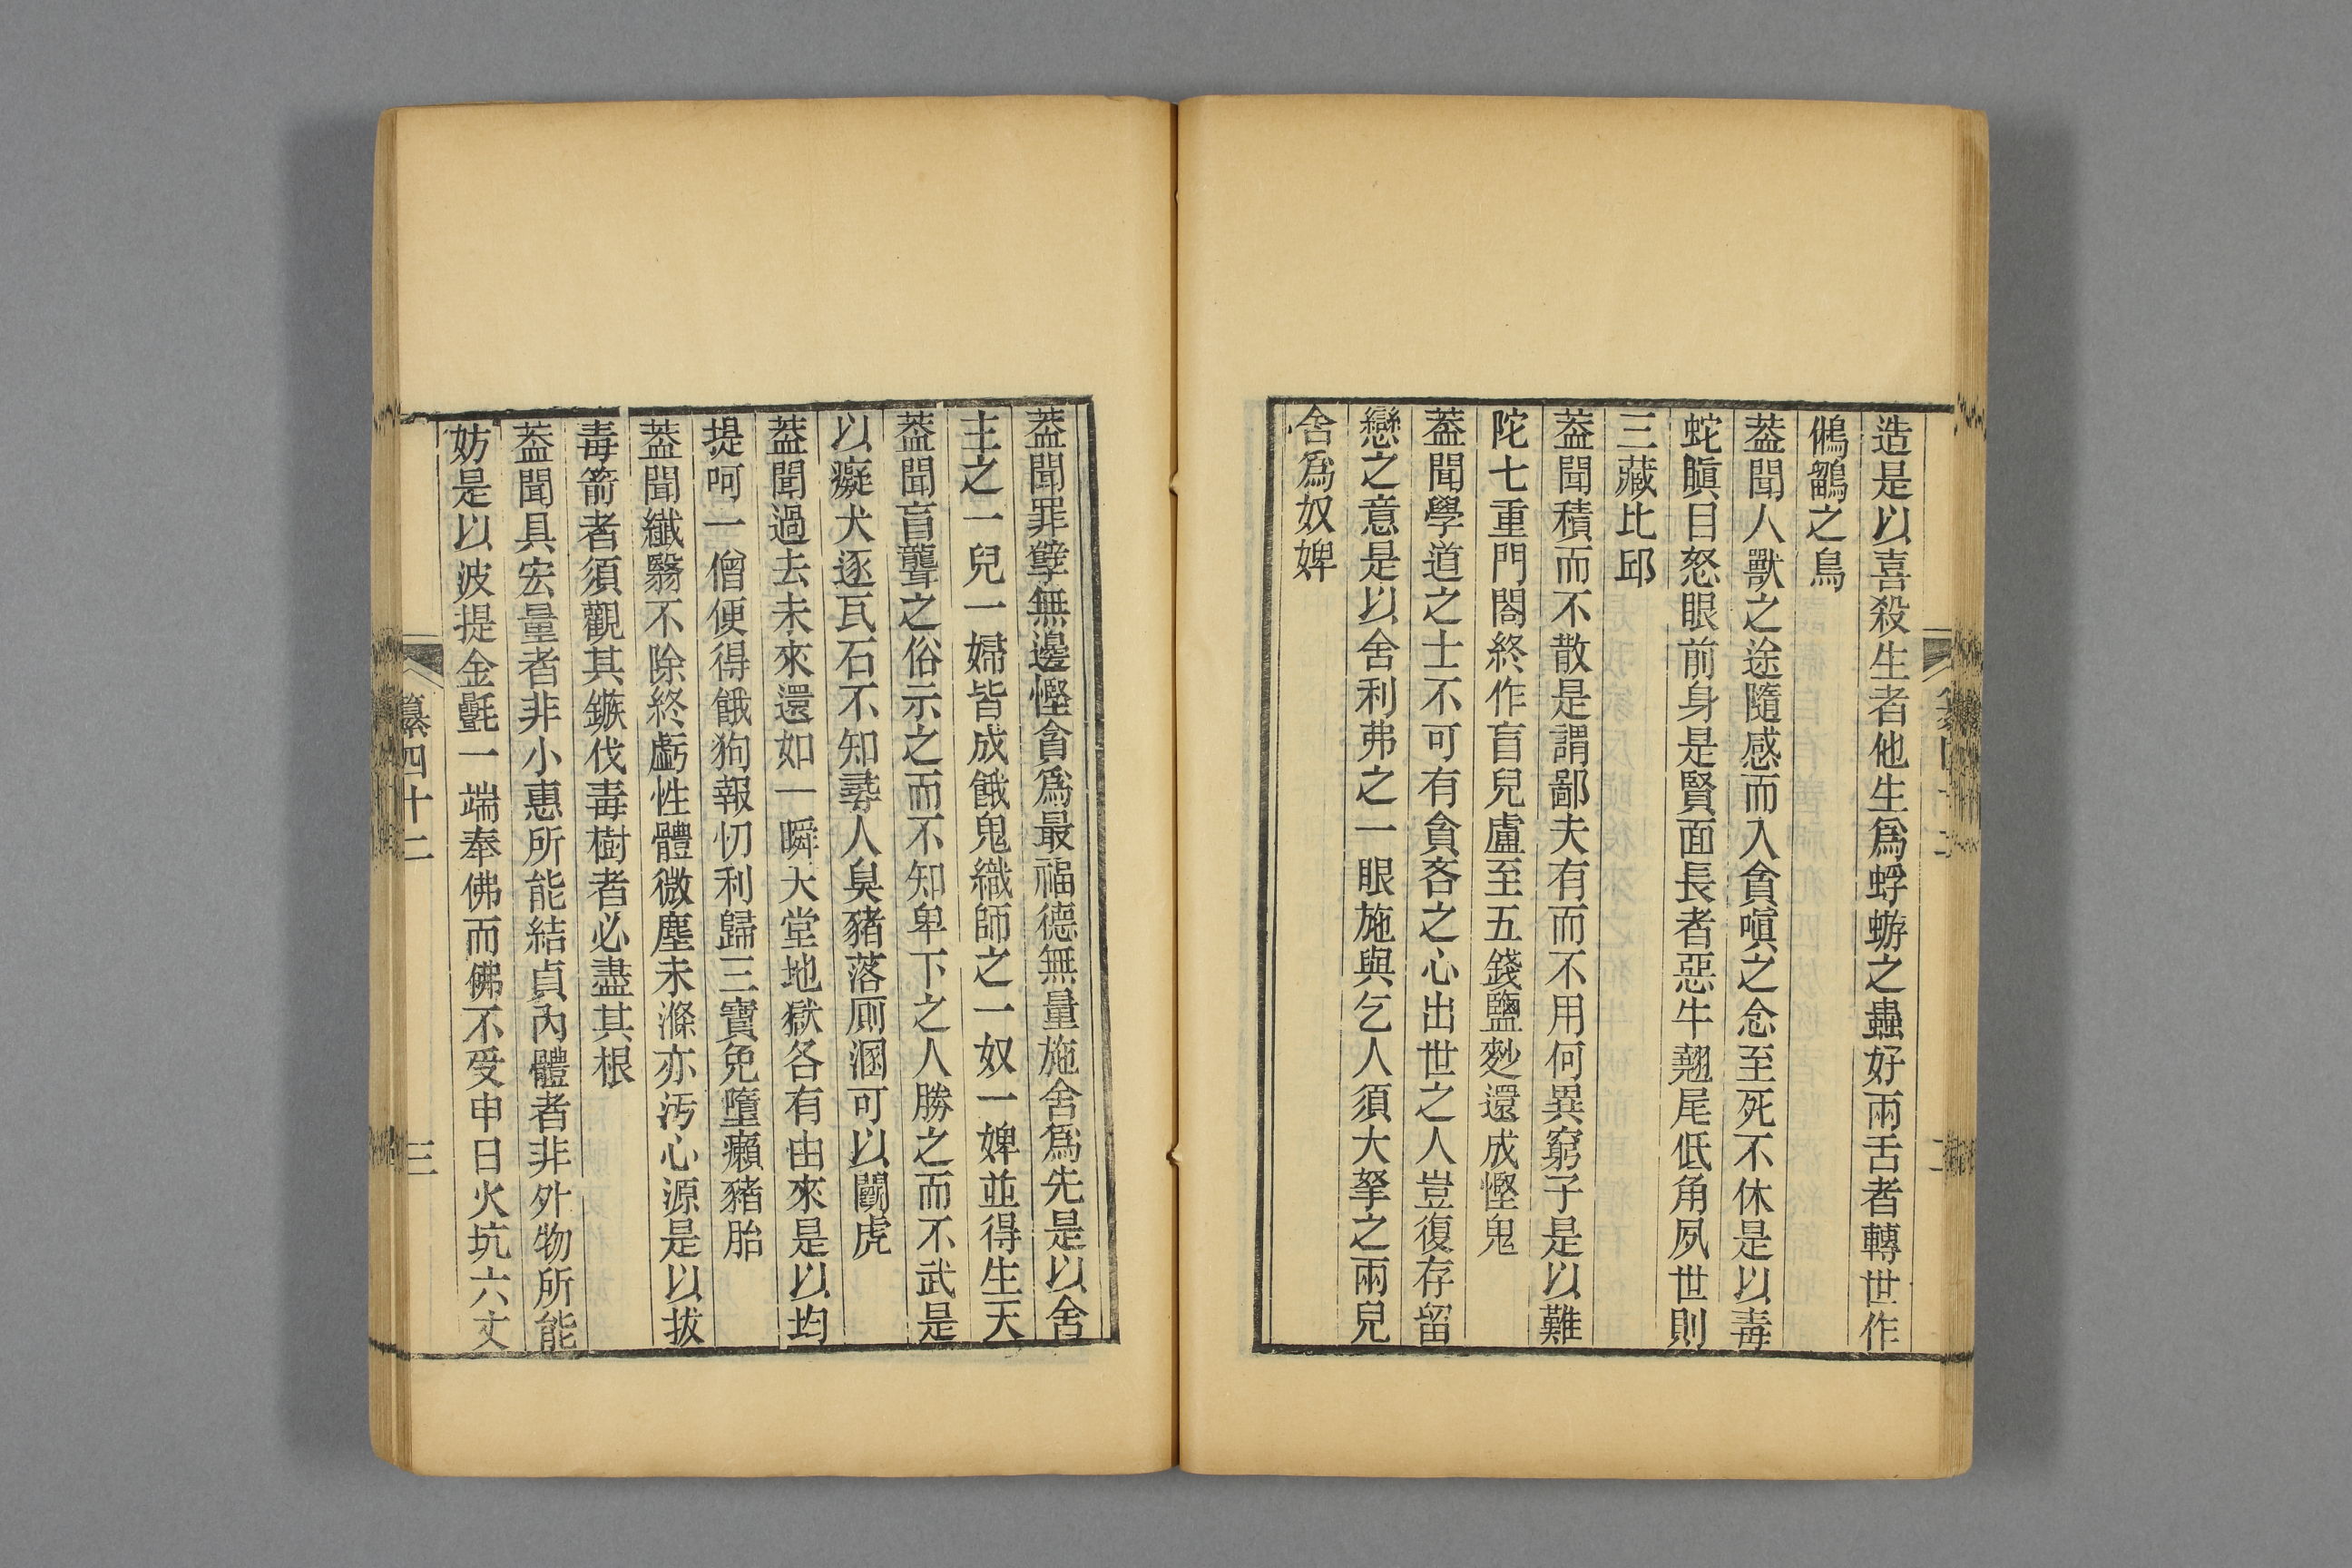 造是以喜殺生者他生爲蜉蝣之蟲好兩舌者轉世作
鵂鶹之鳥
葢聞人獸之途隨感而入貪嗔之念至死不休是以毒
蛇瞋目怒眼前身是賢面長者惡牛翹尾低角夙世則
三藏比邱
葢聞積而不散是謂鄙夫有而不用何異窮子是以難
陀七重門閤終作盲兒盧至五錢鹽麨還成慳鬼
葢聞學道之士不可有貪吝之心出世之人豈復存留
戀之意是以舍利弗之一眼施與乞人須大拏之兩兒
舍爲奴婢
葢聞罪孽無邊慳貪爲最福德無量施舍爲先是以舍
主之一兒一婦皆成餓鬼織師之一奴一婢並得生天
葢聞盲聾之俗示之而不知卑下之人勝之而不武是
以癡犬逐瓦石不知尋人臭豬落厠溷可以鬭虎
葢聞過去未來還如一瞬天堂地獄各有由來是以均
提呵一僧便得餓狗報忉利歸三寶免墮癩豬胎
葢聞纖翳不除終虧性體微塵未滌亦汚心源是以拔
毒箭者須觀其鏃伐毒樹者必盡其根
葢聞具宏量者非小惠所能結貞內體者非外物所能
妨是以波提金㲲一端奉佛而佛不受申日火坑六丈
纂四十二
三